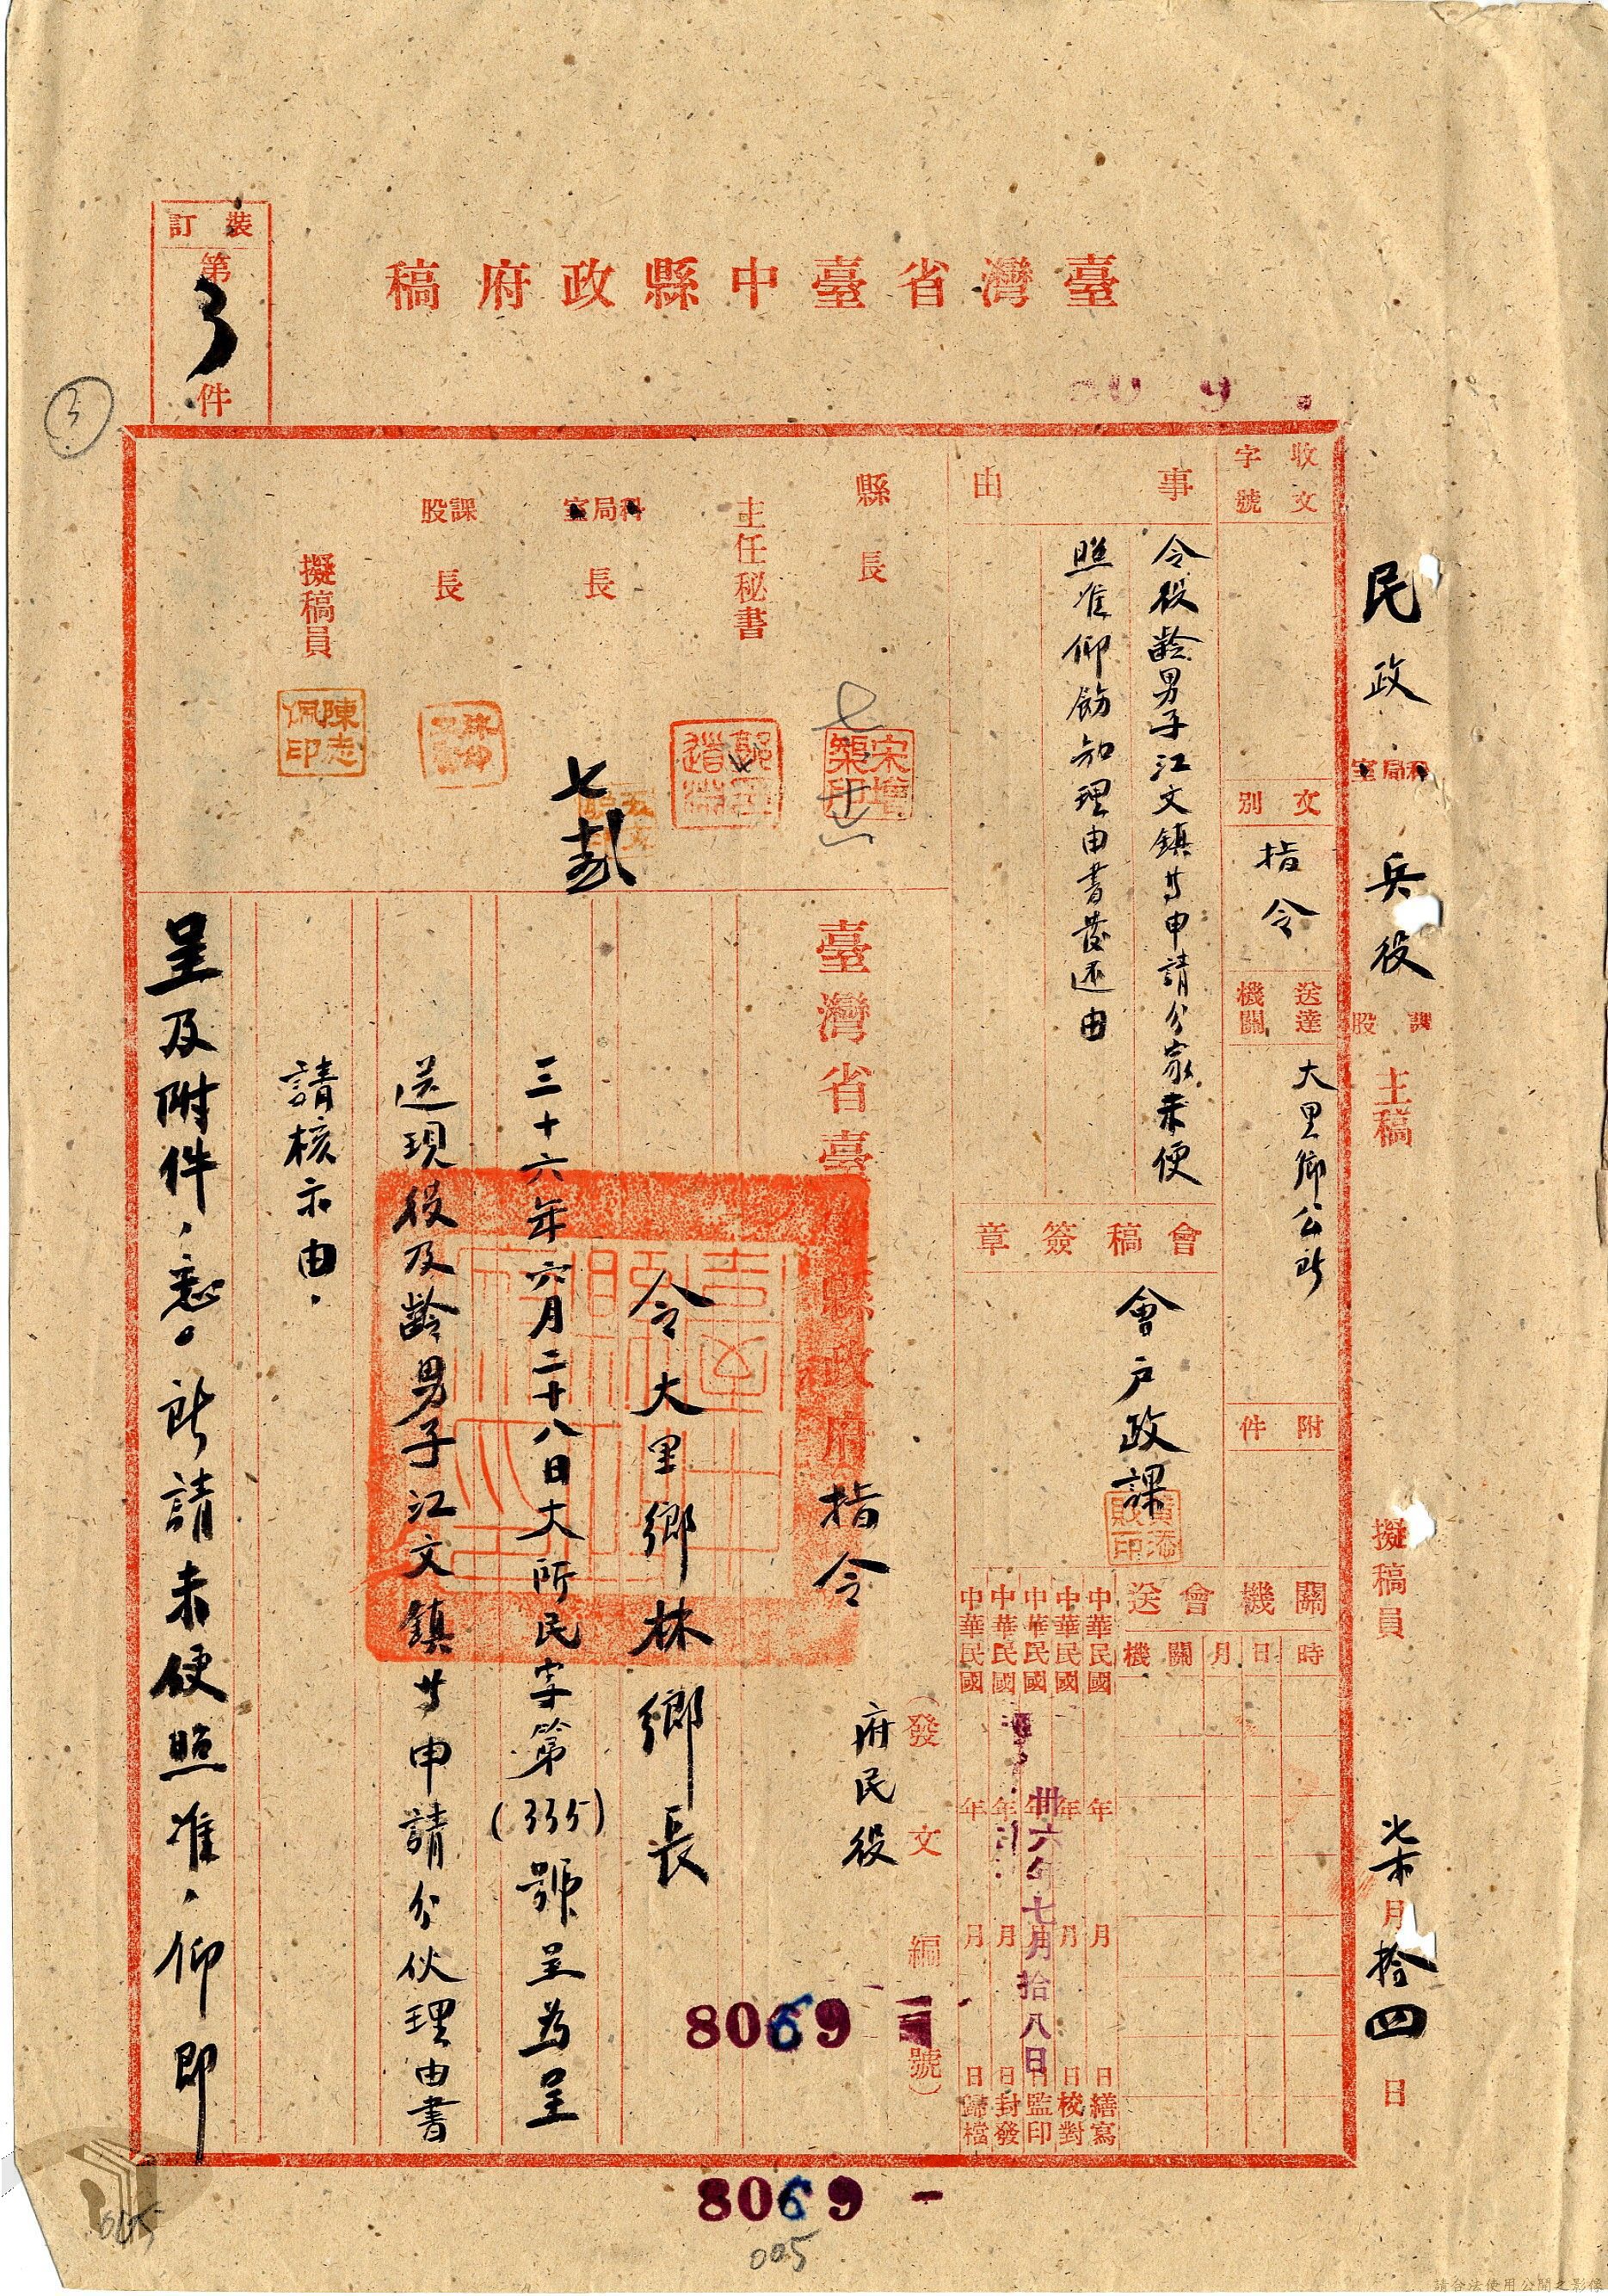 臺灣省臺中縣政府稿
裝訂
第
3
件
3
民政 科局室 兵役 課股 主稿 擬稿員 柒月拾四日
收文
字號
文別
指令
送達機關
大里鄉公所
附件
事由
令役齡男子江文鎮等申請分家未便
照准仰飭知理由書發還由
會稿簽章
會戶政課
關機會送
時 日 月 關機
中華民國 年 月 日繕寫
中華民國 年 月 日校對
中華民國 年 月 日監印
中華民國 年 月 日封發
中華民國 年 月 日歸檔
卅六年七月拾八日
縣長
宋增榘印
主任秘書
科局室長
課股長
擬稿員
陳志佩印
(發文編號)
府民役
8069
臺灣省臺中縣政府指令
令大里鄉林鄉長
三十六年六月二十八日大所民字第(335)號呈為呈
送現役及齡男子江文鎮等申請分伙理由書
請核示由。
呈及附件,悉。所請未便照准,仰即
8069
005
005
請合法使用公開之影像